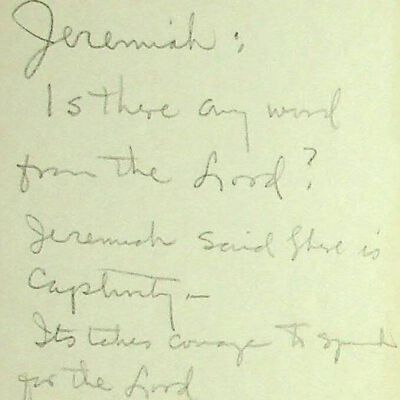 Jeremiah:
Is there any word
from the Lord?
Jeremiah said there is
Captivity —
Its takes courage to speak
for the Lord